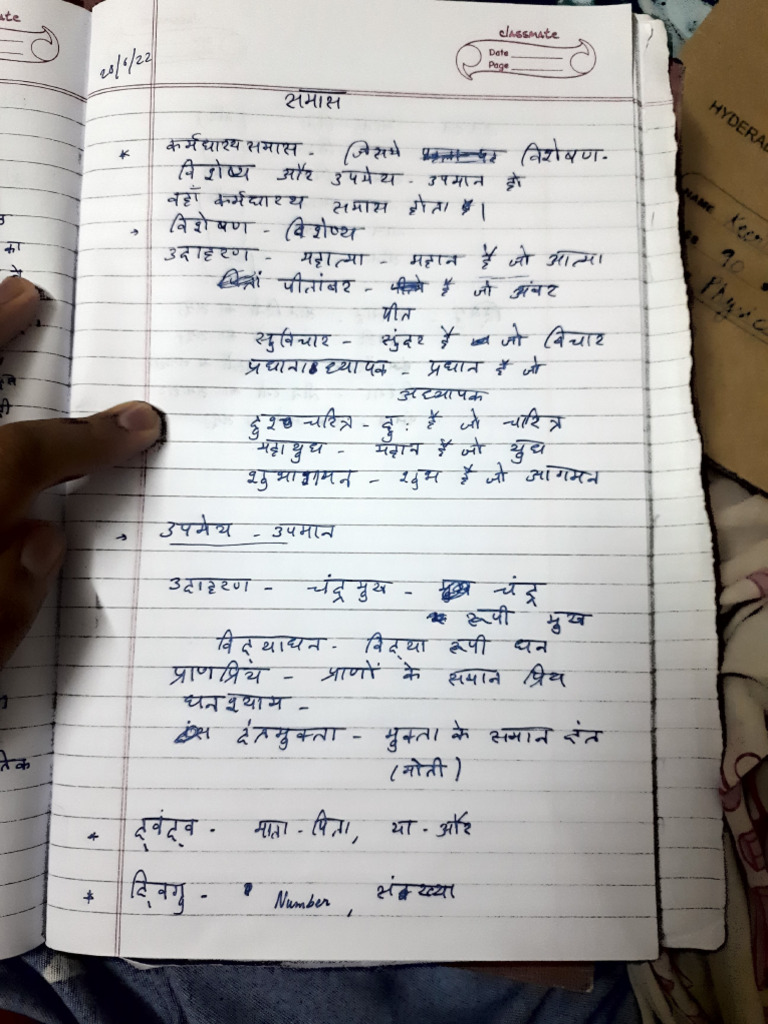 classmate
Date
Page
28/6/22
समास
* कर्मधारय समास - जिसमे विशेषण-
विशेष्य और उपमेय - उपमान हो
वहाँ कर्मधारय समास होता है।
→ विशेषण - विशेष्य
उदाहरण - महात्मा - महान है जो आत्मा
पीतांबर - है जो अंबर
पीत
सुविचार - सुंदर है जो विचार
प्रधानाध्यापक - प्रधान है जो
अध्यापक
दुश्चरित्र - दुः है जो चरित्र
महायुध - महान है जो युध
शुभागमन - शुभ है जो आगमन
→ उपमेय - उपमान
उदाहरण - चंद्रमुख - चंद्र
रूपी मुख
विद्याधन - विद्या रूपी धन
प्राणप्रिय - प्राणों के समान प्रिय
घनश्याम -
दंतमुक्ता - मुक्ता के समान दंत
(मोती)
* द्वंद्व - माता - पिता, या - और
* द्विगु - Number, संख्या
HYDERA
NAME Keer
90
Physic